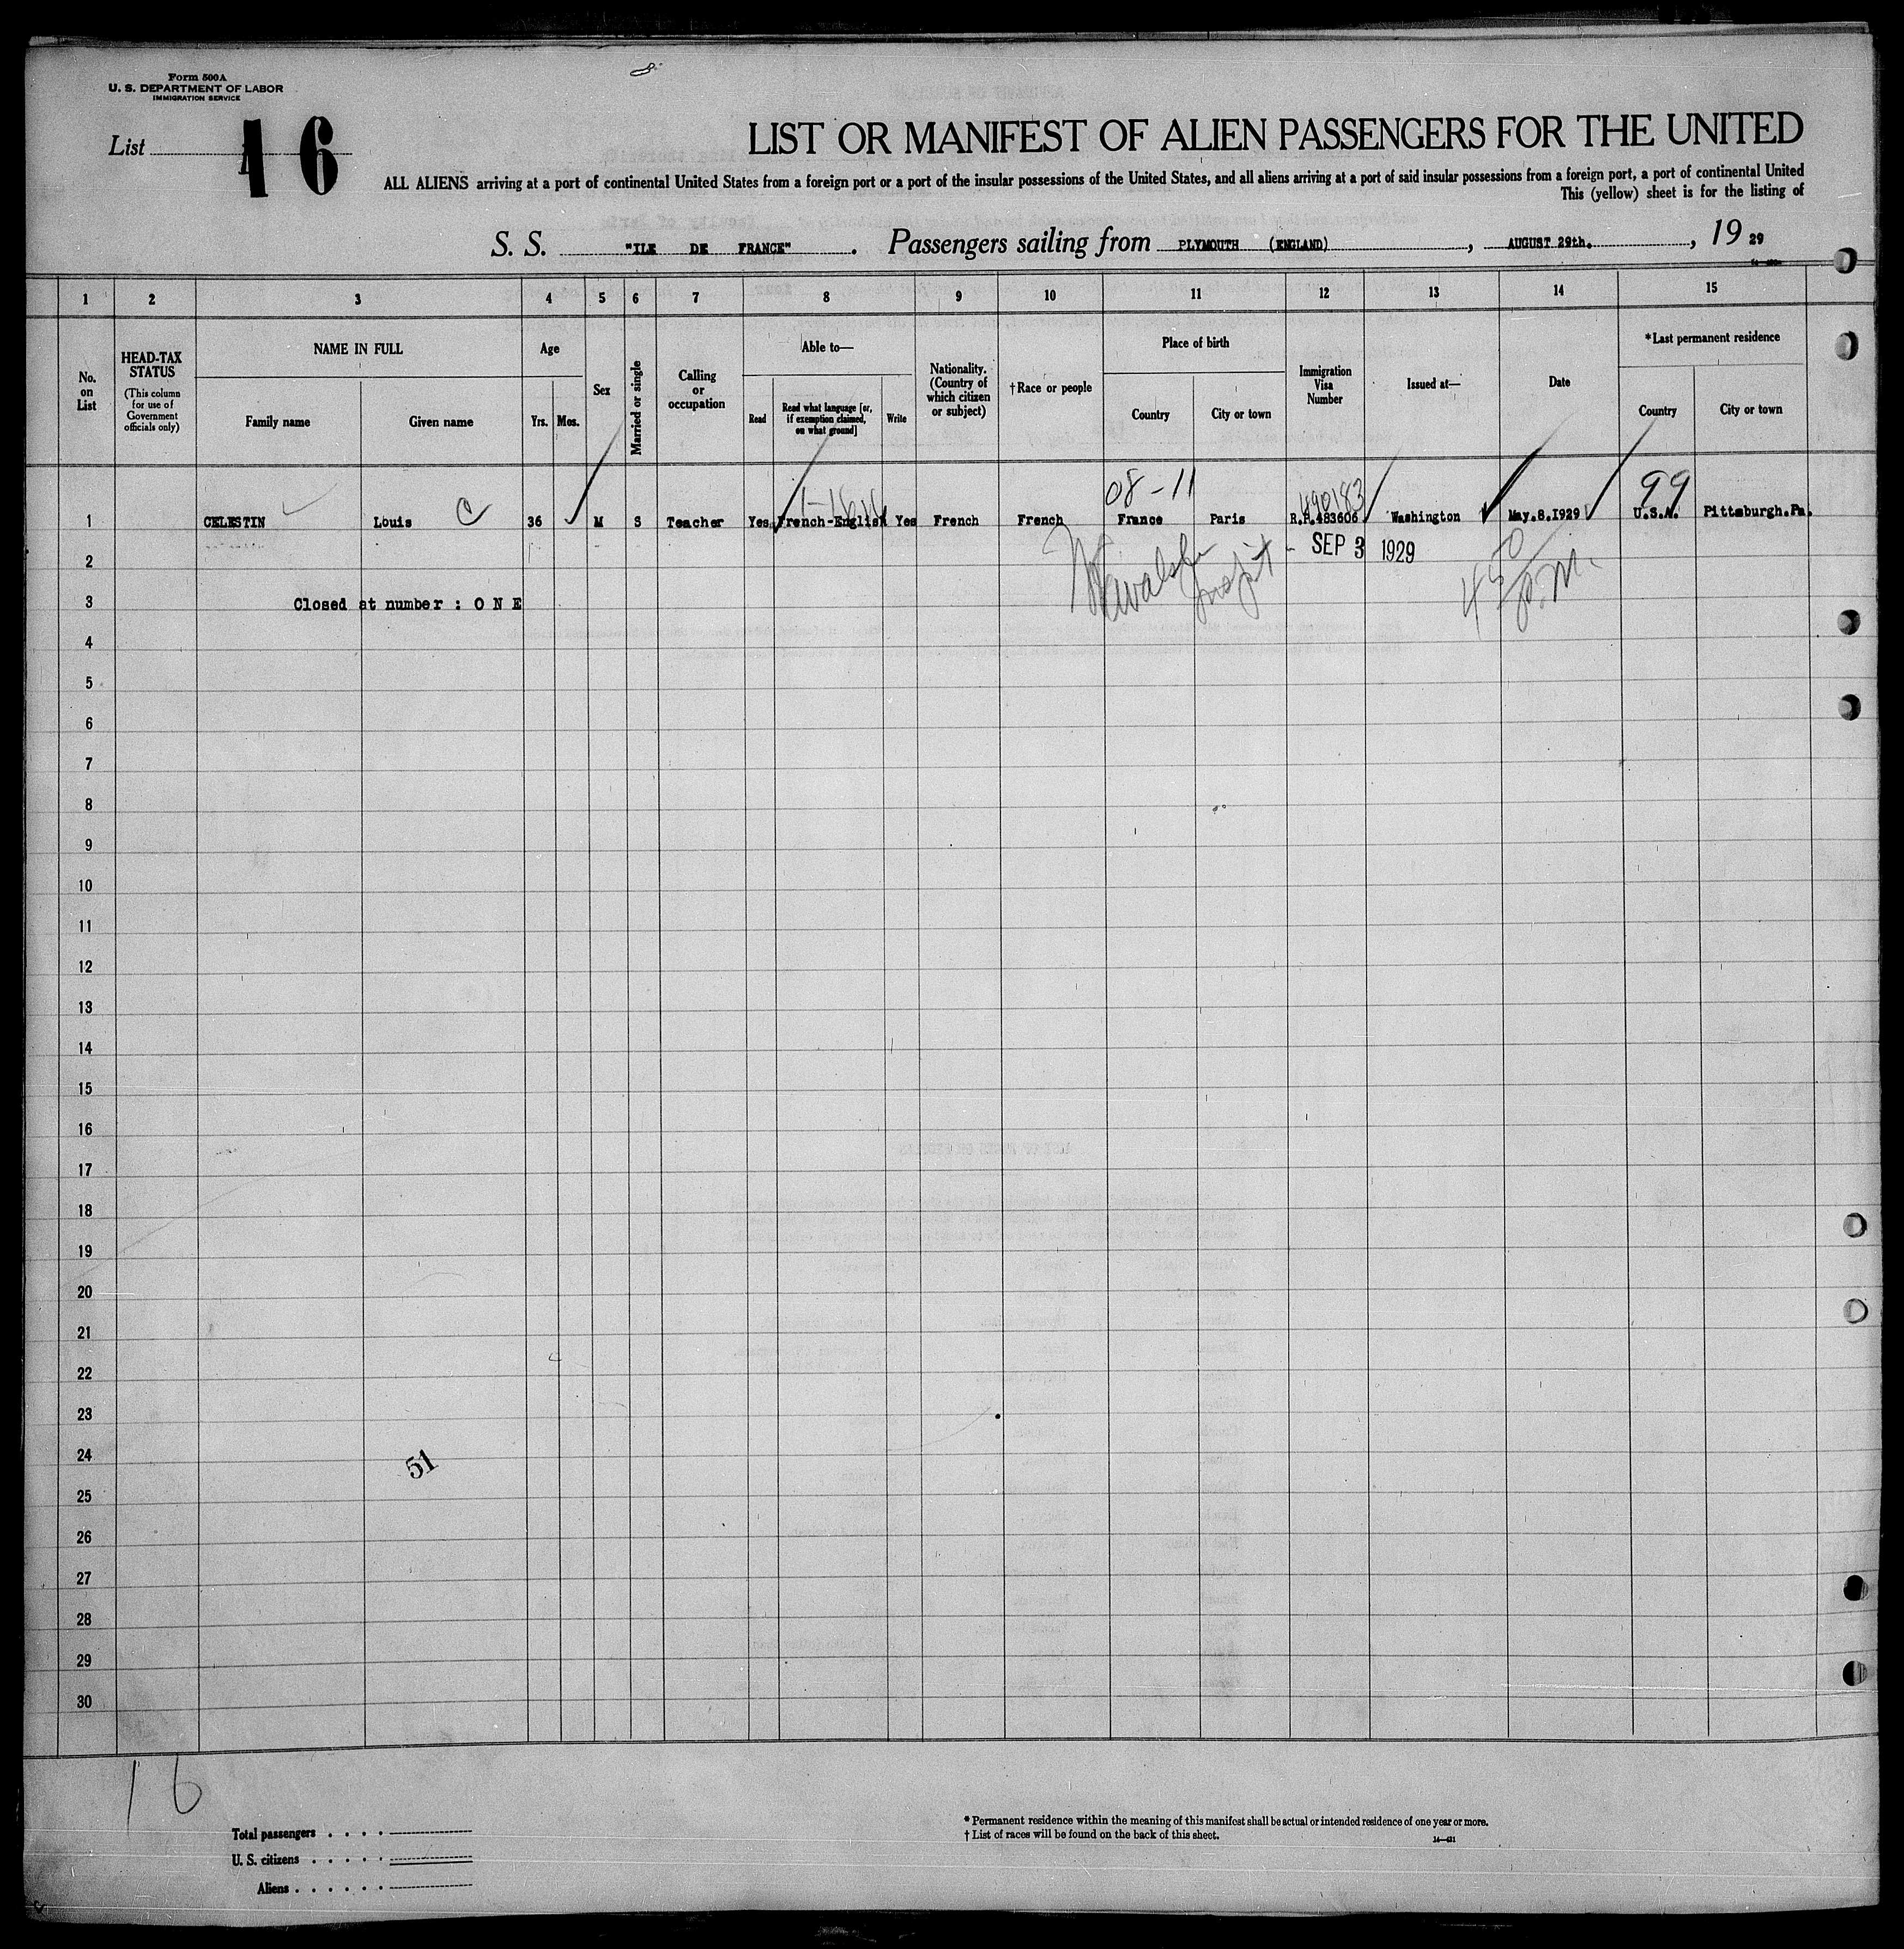 Form 500A
U. S. DEPARTMENT OF LABOR
IMMIGRATION SERVICE
List 16
LIST OR MANIFEST OF ALIEN PASSENGERS FOR THE UNITED
ALL ALIENS arriving at a port of continental United States from a foreign port or a port of the insular possessions of the United States, and all aliens arriving at a port of said insular possessions from a foreign port, a port of continental United
This (yellow) sheet is for the listing of
S. S. "ILE DE FRANCE". Passengers sailing from PLYMOUTH (ENGLAND), AUGUST 29th., 19 29
1 2 3 4 5 6 7 8 9 10 11 12 13 14 15
No. on List
HEAD-TAX STATUS
(This column for use of Government officials only)
NAME IN FULL
Family name Given name
Age
Yrs. Mos.
Sex
Married or single
Calling or occupation
Able to—
Read
Read what language [or, if exemption claimed, on what ground]
Write
Nationality. (Country of which citizen or subject)
†Race or people
Place of birth
Country City or town
Immigration Visa Number
Issued at—
Date
*Last permanent residence
Country City or town
08-11 490183 99
1 CELESTIN Louis C 36 M S Teacher Yes French-English Yes French French France Paris R.P.483606 Washington May.8.1929 U.S.A. Pittsburgh.Pa.
2 SEP 3 1929
3 Closed at number : O N E
4
5
6
7
8
9
10
11
12
13
14
15
16
17
18
19
20
21
22
23
24
51
25
26
27
28
29
30
16
Total passengers . . . .
U. S. citizens . . . . .
Aliens . . . . . .
* Permanent residence within the meaning of this manifest shall be actual or intended residence of one year or more.
† List of races will be found on the back of this sheet.